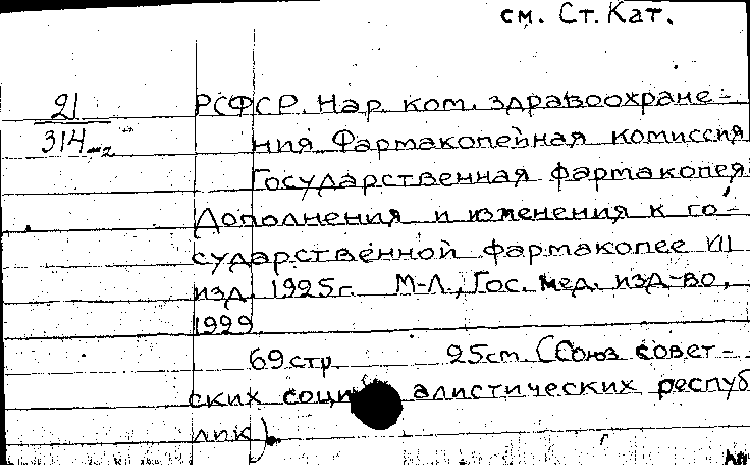 см. Ст. Кат.
21
314-2
РСФСР. Нар. ком. здравоохране-
ния. Фармакопейная комиссия
Государственная фармакопея
Дополнения и изменения к го-
сударственной фармакопее VII
изд. 1925г. М-Л., Гос. мед. изд-во,
1929.
69 стр. 25 cm. (Союз совет-
ских социалистических респуб
лик).